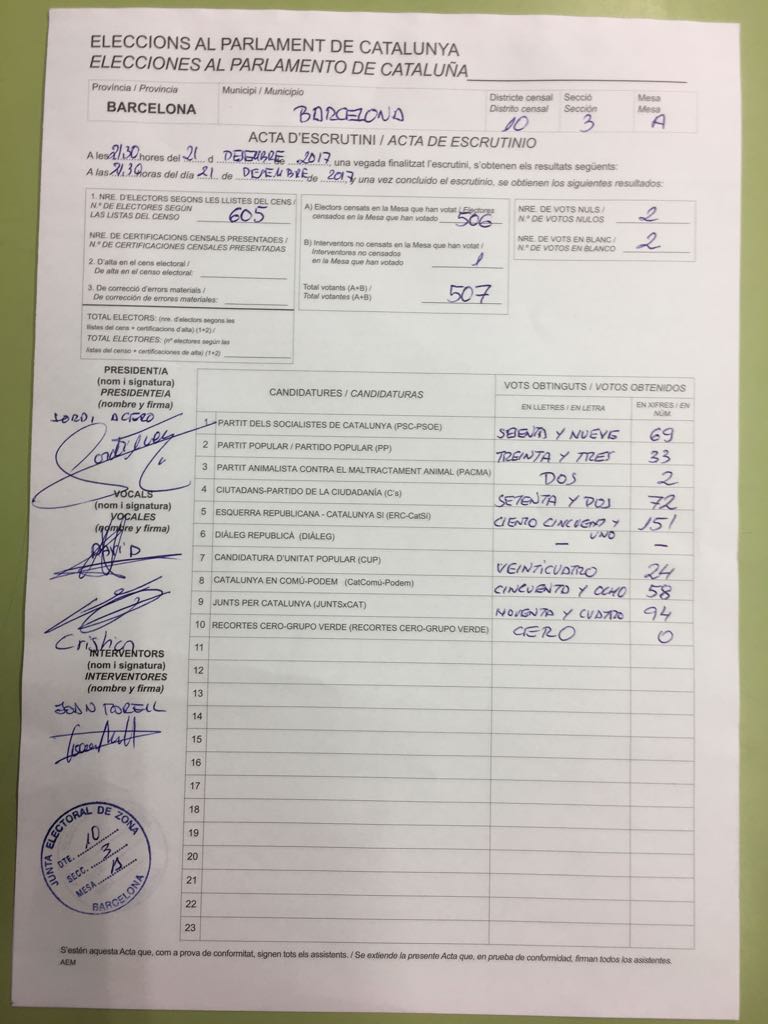 ELECCIONS AL PARLAMENT DE CATALUNYA
ELECCIONES AL PARLAMENTO DE CATALUÑA
Província / Provincia
BARCELONA
Municipi / Municipio
BARCELONA
Districte censal
Distrito censal
10
Secció
Sección
3
Mesa
Mesa
A
ACTA D'ESCRUTINI / ACTA DE ESCRUTINIO
A les 21,30 hores del 21 d DEIEMBRE de 2017, una vegada finalitzat l'escrutini, s'obtenen els resultats següents:
A las 21,30 horas del día 21 de DEIEMBRE de 2017 y una vez concluido el escrutinio, se obtienen los siguientes resultados:
1. NRE. D'ELECTORS SEGONS LES LLISTES DEL CENS /
N.º DE ELECTORES SEGÚN
LAS LISTAS DEL CENSO 605
NRE. DE CERTIFICACIONS CENSALS PRESENTADES /
N.º DE CERTIFICACIONES CENSALES PRESENTADAS
2. D'alta en el cens electoral /
De alta en el censo electoral:
3. De correcció d'errors materials /
De corrección de errores materiales:
TOTAL ELECTORS: (nre. d'electors segons les
llistes del cens + certificacions d'alta) (1+2) /
TOTAL ELECTORES: (nº electores según las
listas del censo + certificaciones de alta) (1+2)
A) Electors censats en la Mesa que han votat / Electores
censados en la Mesa que han votado 506
B) Interventors no censats en la Mesa que han votat /
Interventores no censados
en la Mesa que han votado 1
Total votants (A+B) /
Total votantes (A+B) 507
NRE. DE VOTS NULS /
N.º DE VOTOS NULOS 2
NRE. DE VOTS EN BLANC /
N.º DE VOTOS EN BLANCO 2
PRESIDENT/A
(nom i signatura)
PRESIDENTE/A
(nombre y firma)
JORDI ACERO
VOCALS
(nom i signatura)
VOCALES
(nombre y firma)
DAVID
INTERVENTORS
(nom i signatura)
INTERVENTORES
(nombre y firma)
JOAN TORELL
JUNTA ELECTORAL DE ZONA
DTE. 10
SECC. 3
MESA A
BARCELONA
CANDIDATURES / CANDIDATURAS
VOTS OBTINGUTS / VOTOS OBTENIDOS
EN LLETRES / EN LETRA
EN XIFRES / EN NÚM.
1 PARTIT DELS SOCIALISTES DE CATALUNYA (PSC-PSOE) SESENTA Y NUEVE 69
2 PARTIT POPULAR / PARTIDO POPULAR (PP) TREINTA Y TRES 33
3 PARTIT ANIMALISTA CONTRA EL MALTRACTAMENT ANIMAL (PACMA) DOS 2
4 CIUTADANS-PARTIDO DE LA CIUDADANÍA (C's) SETENTA Y DOS 72
5 ESQUERRA REPUBLICANA - CATALUNYA SÍ (ERC-CatSí) CIENTO CINCUENTA Y UNO 151
6 DIÀLEG REPUBLICÀ (DIÀLEG) — —
7 CANDIDATURA D'UNITAT POPULAR (CUP) VEINTICUATRO 24
8 CATALUNYA EN COMÚ-PODEM (CatComú-Podem) CINCUENTA Y OCHO 58
9 JUNTS PER CATALUNYA (JUNTSxCAT) NOVENTA Y CUATRO 94
10 RECORTES CERO-GRUPO VERDE (RECORTES CERO-GRUPO VERDE) CERO 0
11
12
13
14
15
16
17
18
19
20
21
22
23
S'estén aquesta Acta que, com a prova de conformitat, signen tots els assistents. / Se extiende la presente Acta que, en prueba de conformidad, firman todos los asistentes.
AEM